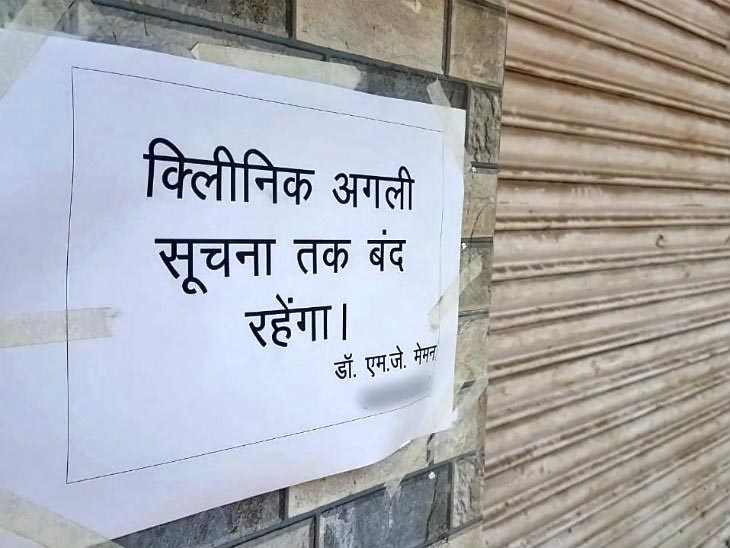 क्लिीनिक अगली
सूचना तक बंद
रहेंगा।
डॉ. एम.जे. मेमन